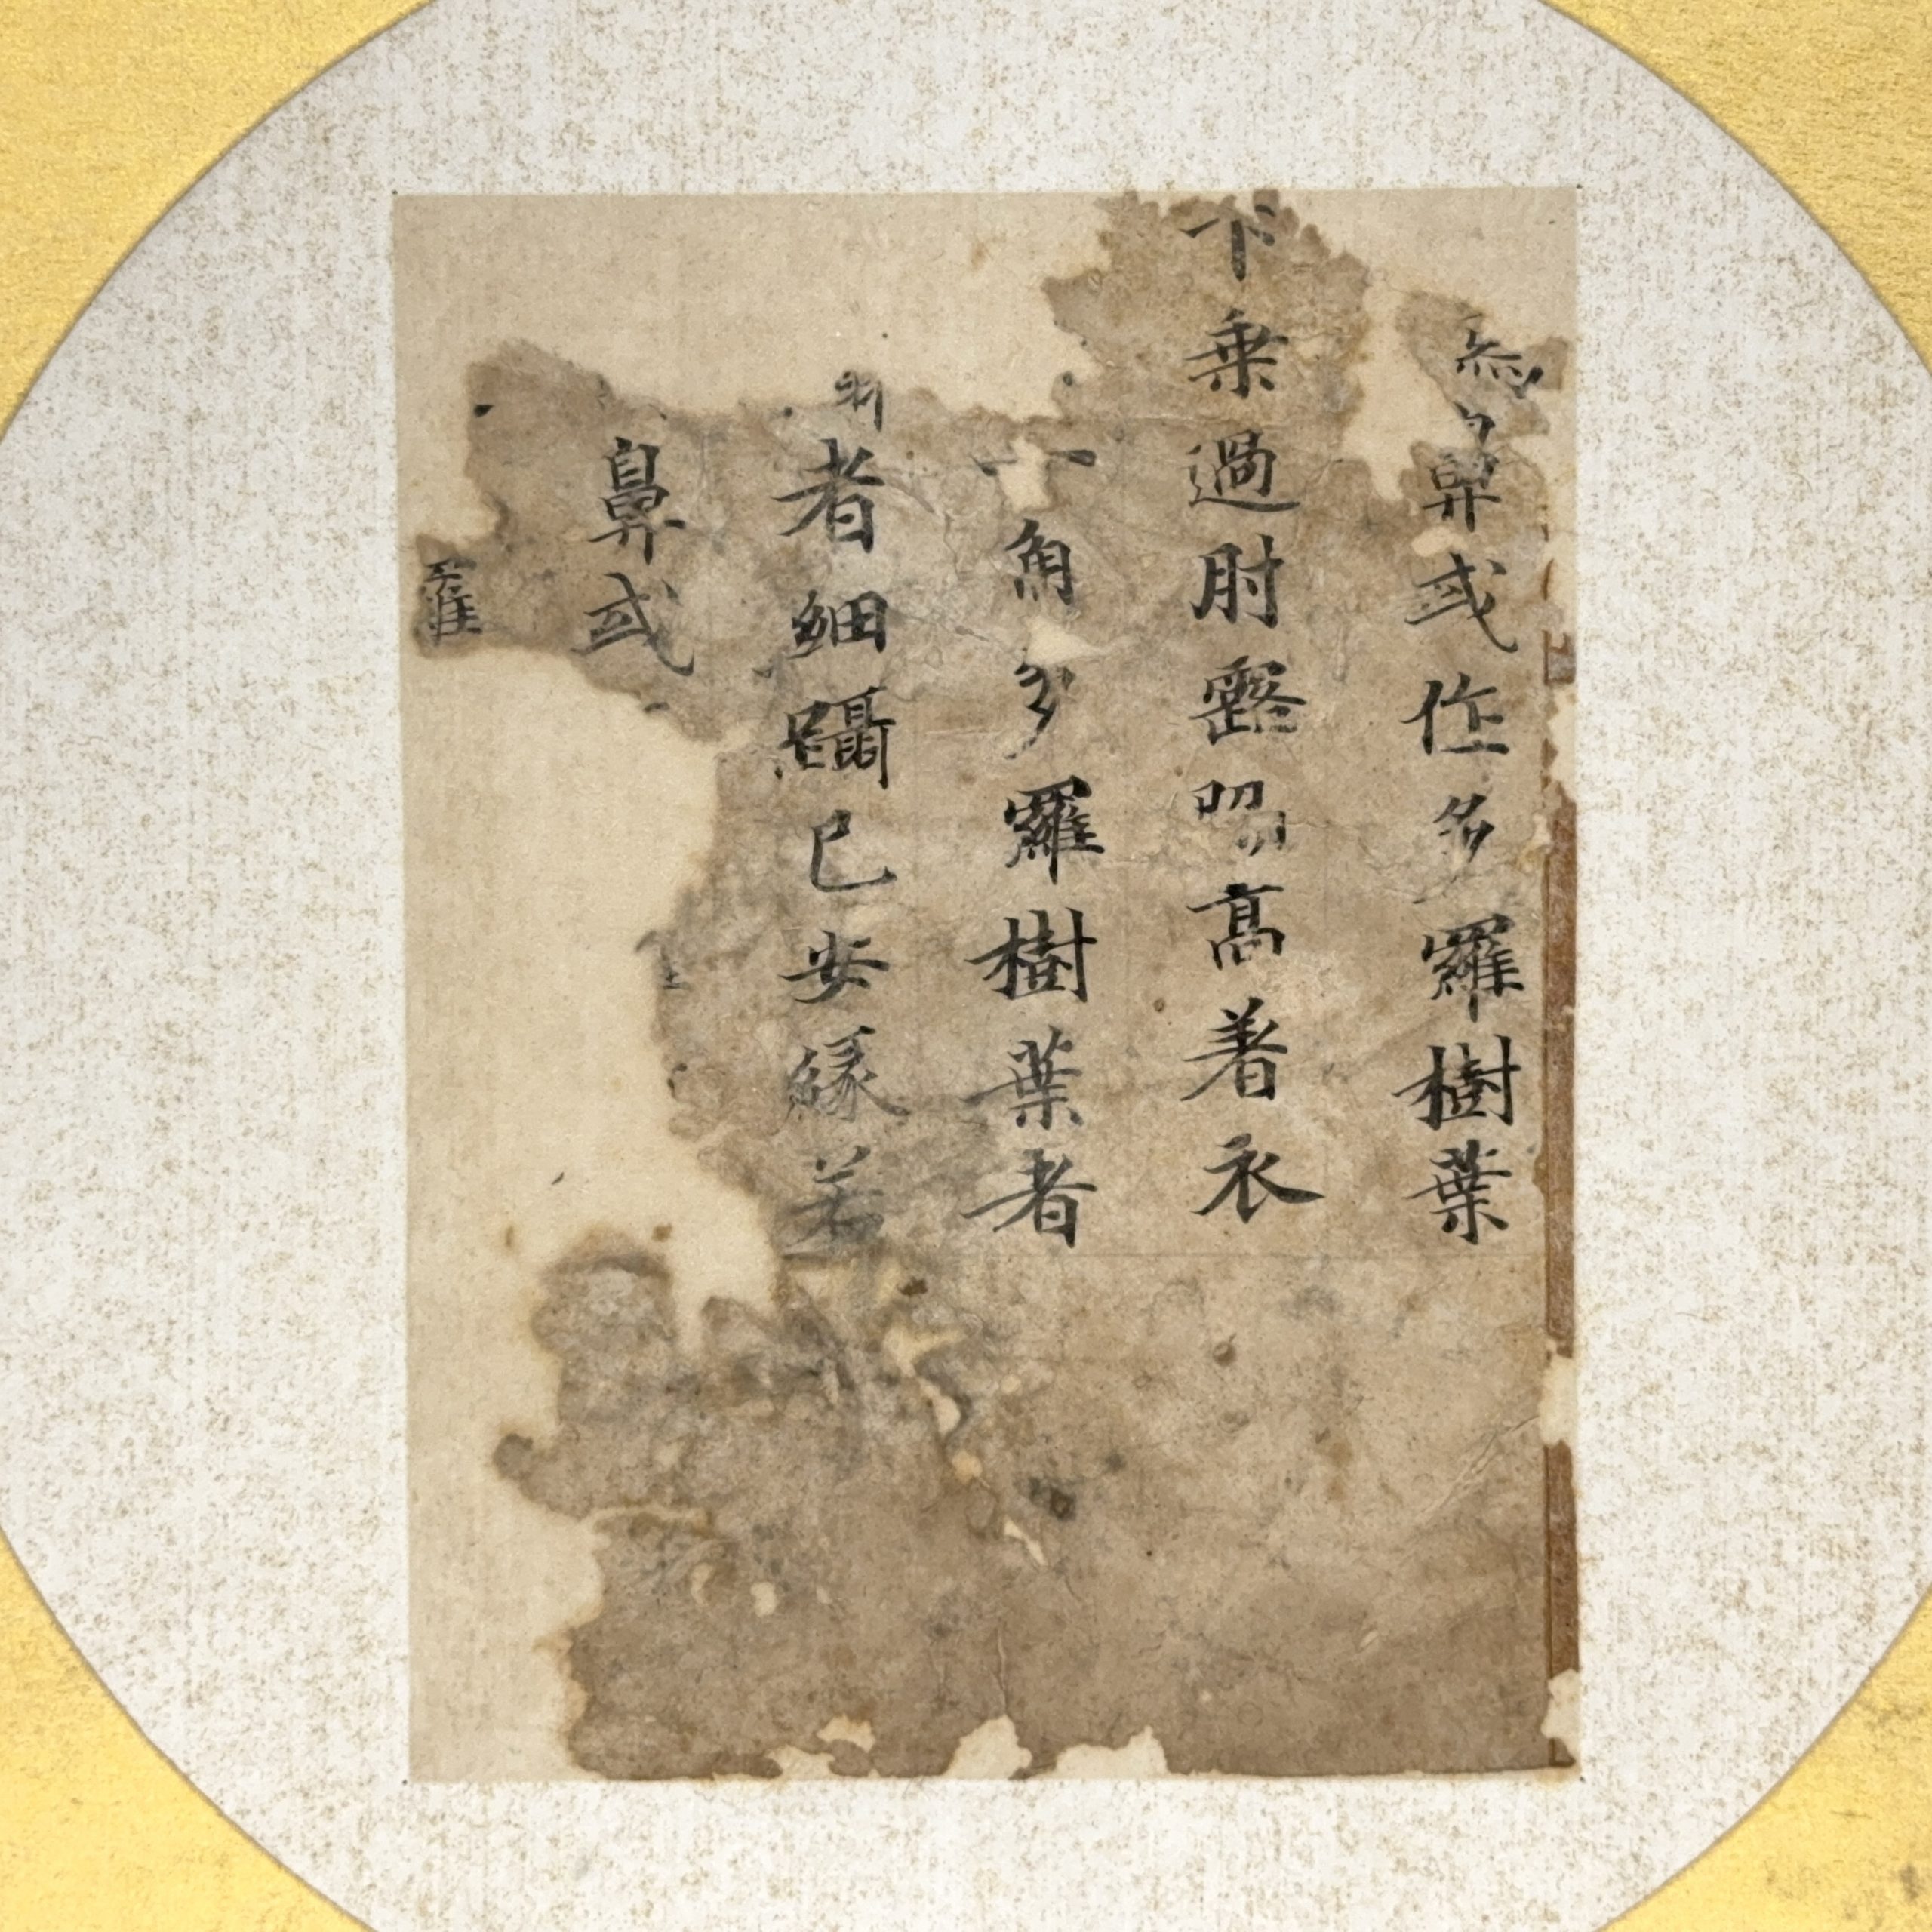 鼻或作多羅樹葉
下垂過肘露𦟛高著衣
角多羅樹葉者
者細躡已安緣若
鼻或
羅